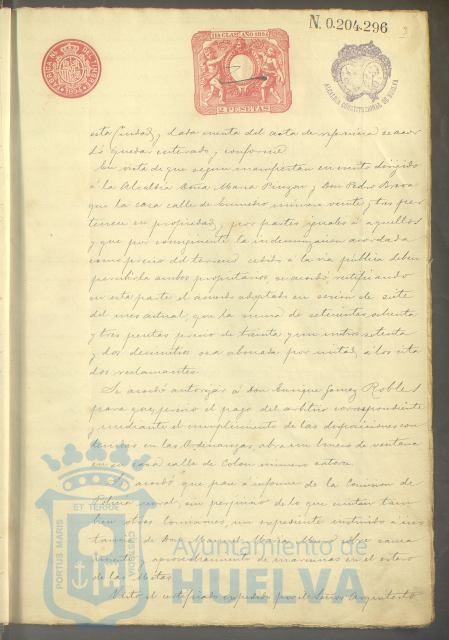 N. 0.204.296
FABRICA NL DEL TIMBRE
1894
11ª CLASE AÑO 1894
2 PESETAS
ALCALDIA CONSTITUCIONAL DE HUELVA
esta Ciudad, y dada cuenta del acta de referencia se acor-
dó quedar enterado y conforme
En vista de que segun manifiestan en escrito dirijido
á la Alcaldia Doña Maria y Don Pedro Bravo
que la casa calle de Enmedio número veinte y tres per-
tenece en propiedad, y por partes iguales á aquellos
y que por consiguiente la indemnizacion acordada
como precio del terreno cedido á la via publica deben
percibirla ambos propietarios, se acordó, rectificando
en esta parte el acuerdo adoptado en sesion de siete
del mes actual, que la suma de setecientas ochenta
y tres pesetas precio de treinta y un metros setenta
y dos decimetros sea abonada por mitad, á los cita
dos reclamantes.
Se acordó autorizar á Don Enrique Gomez Robles
para que, previo el pago del arbitrio correspondiente
y mediante el cumplimiento de las disposiciones con
tenidas en las Ordenanzas, abra un hueco de ventana
en su casa calle de Colon número catorce.
Se acordó que pase á informe de la Comision de
Policia rural, sin perjuicio de lo que emitan tam
bien otras Comisiones, un expediente instruido á ins
tancia de Don Manuel Maria sobre sanea
miento y aprovechamiento de marismas en el estero
de las Metas
Visto el certificado expedido por el Señor Arquitecto
PORTUS MARIS
ET TERRÆ
CUSTODIA
Ayuntamiento de
HUELVA